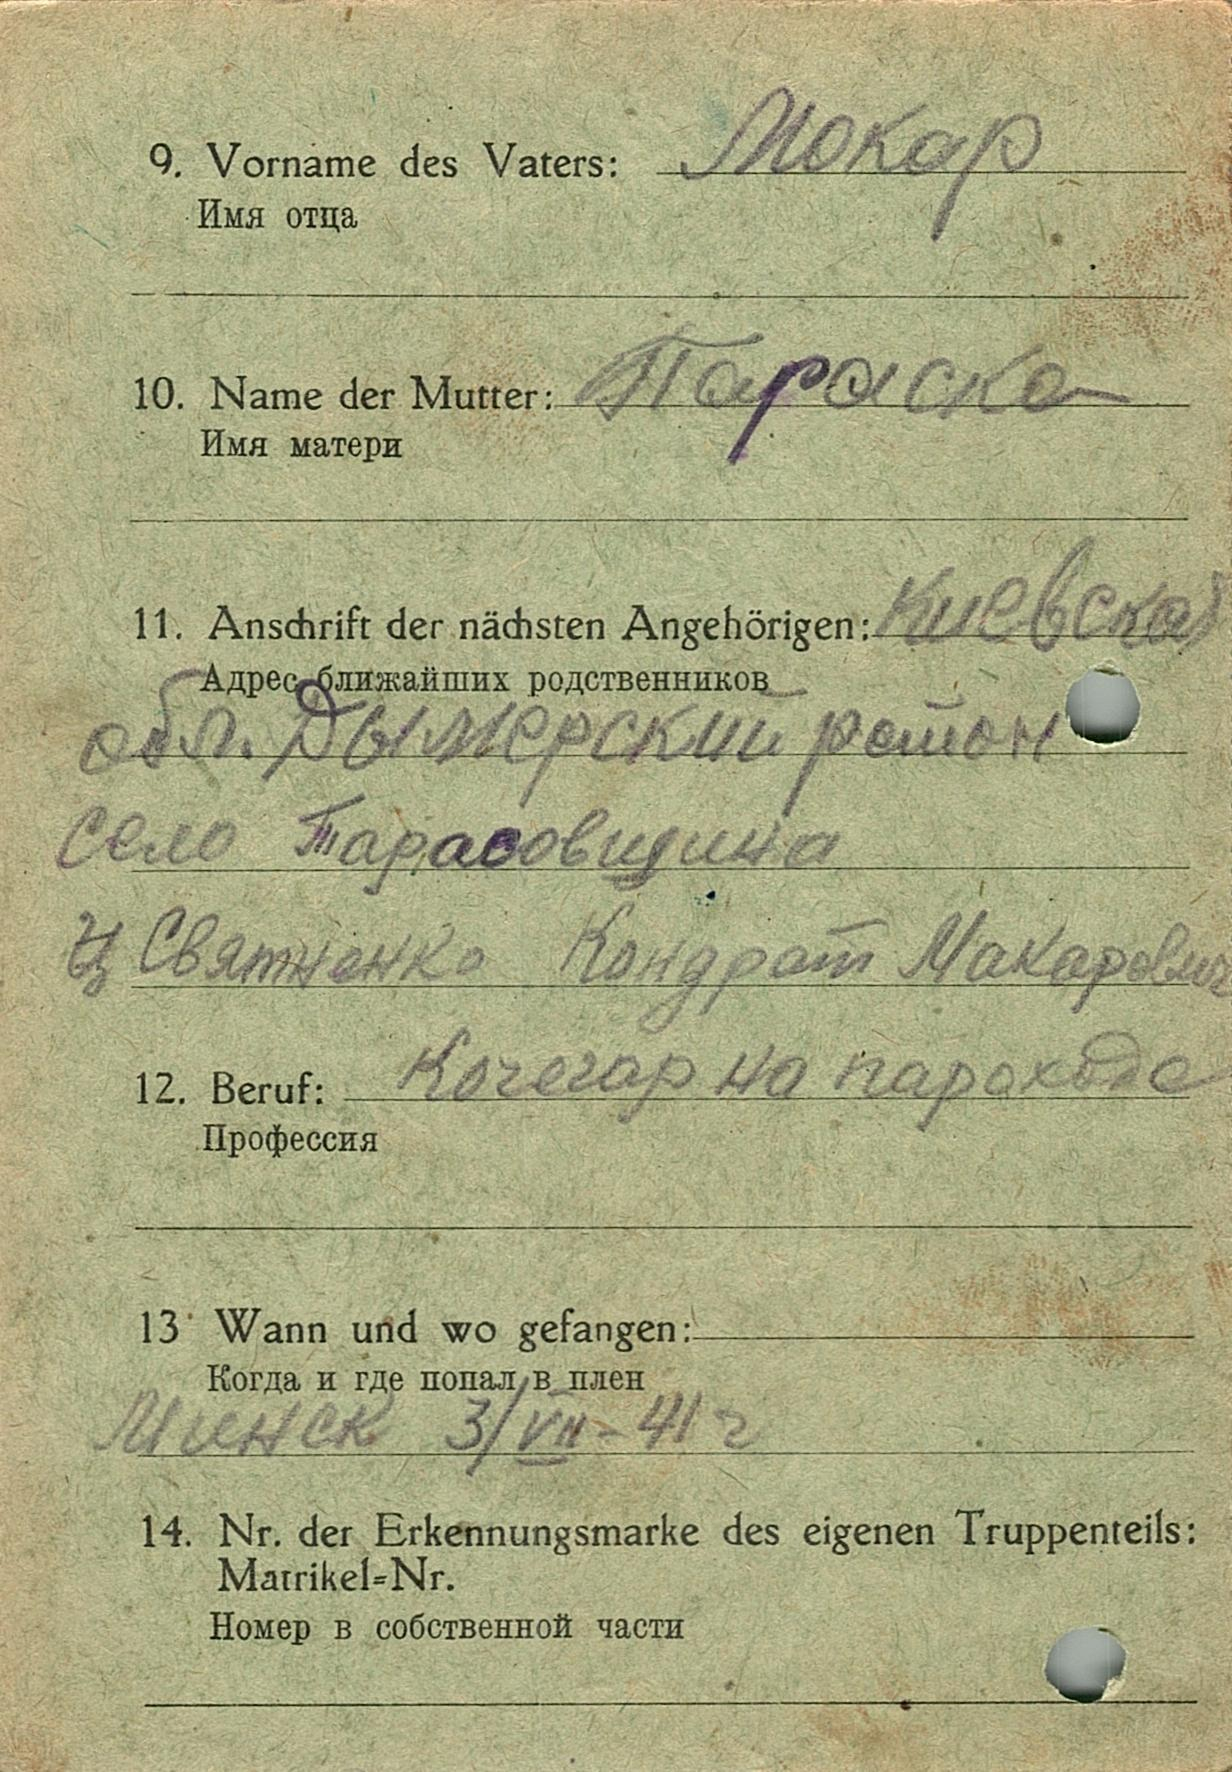 9. Vorname des Vaters: Мокар
Имя отца
10. Name der Mutter: Параска
Имя матери
11. Anschrift der nächsten Angehörigen: Киевская
Адрес ближайших родственников
обл. Дымерский район
село Тарасовщина
Святненко Кондрат Макарович
12. Beruf: Кочегар на пароходе
Профессия
13 Wann und wo gefangen:
Когда и где попал в плен
Минск 3/VII-41 г
14. Nr. der Erkennungsmarke des eigenen Truppenteils:
Matrikel=Nr.
Номер в собственной части